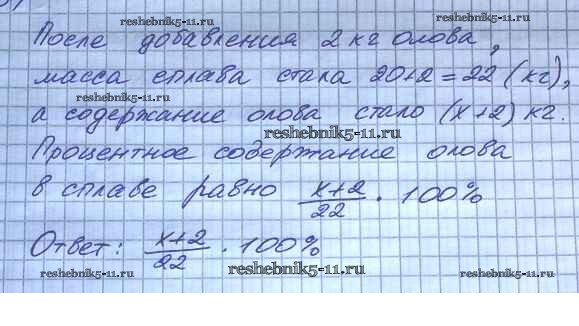 reshebnik5-11.ru
После добавления 2 кг олова,
reshebnik5-11.ru
масса сплава стала 20+2=22 (кг),
reshebnik5-11.ru
а содержание олова стало (x+2) кг.
reshebnik5-11.ru
Процентное содержание олова
reshebnik5-11.ru
в сплаве равно x+2/22 · 100%
reshebnik5-11.ru
Ответ: x+2/22 · 100%
reshebnik5-11.ru reshebnik5-11.ru reshebnik5-11.ru